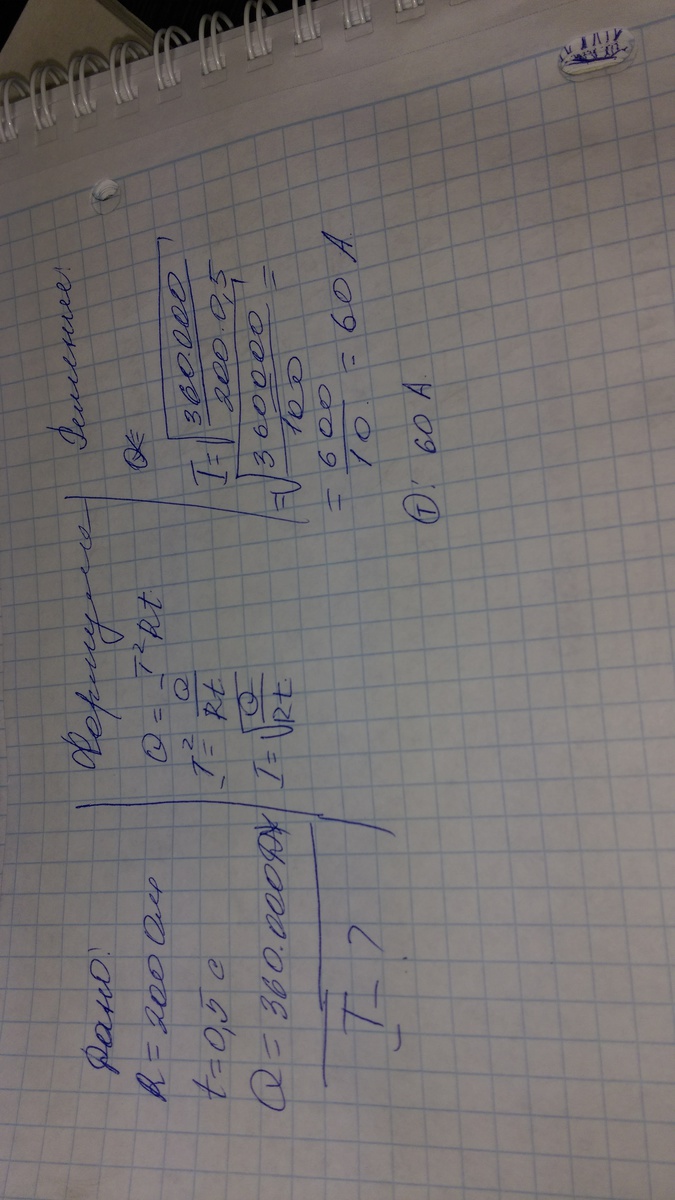 Дано:
R = 200 Ом
t = 0,5 с
Q = 360.000 Дж
I - ?
Формулы
Q = I²Rt
I² = Q/Rt
I = √Q/Rt
Решение:
I = √360.000/200.0,5
= √360000/100 =
= 600/10 = 60 А.
: 60 А.